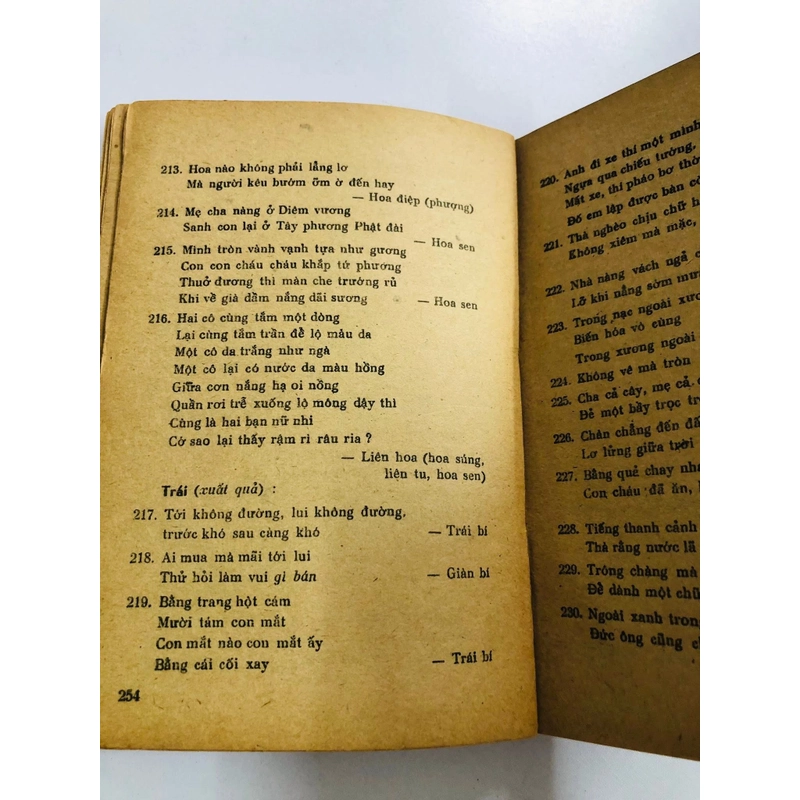 213. Hoa nào không phải lẳng lơ
Mà người kêu bướm ỡm ờ đến hay
— Hoa điệp (phượng)
214. Mẹ cha nàng ở Diêm vương
Sanh con lại ở Tây phương Phật đài
— Hoa sen
215. Mình tròn vành vạnh tựa như gương
Con con cháu cháu khắp tứ phương
Thuở đương thì màn che trướng rủ
Khi về già dầm nắng dãi sương — Hoa sen
216. Hai cô cùng tắm một dòng
Lại cùng tắm trần để lộ màu da
Một cô da trắng như ngà
Một cô lại có nước da màu hồng
Giữa cơn nắng hạ oi nồng
Quần rơi trễ xuống lộ mông dậy thì
Cùng là hai bạn nữ nhi
Cớ sao lại thấy rậm ri râu ria ?
— Liên hoa (hoa súng,
liên tu, hoa sen)
Trái (xuất quả) :
217. Tới không đường, lui không đường,
trước khó sau càng khó — Trái bí
218. Ai mua mà mãi tới lui
Thử hỏi làm vui gì bán — Giàn bí
219. Bằng trang hột cám
Mười tám con mắt
Con mắt nào con mắt ấy
Bằng cái cối xay — Trái bí
254
220. Anh đi xe thí một mình
Ngựa qua chiếu tướng,
Mất xe, thí pháo bơ thờ
Đố em lập được bàn cờ
221. Thà nghèo chịu chữ
Không xiêm mà mặc,
222. Nhà nàng vách ngả
Lỡ khi nắng sớm
223. Trong nạc ngoài xương
Biến hóa vô cùng
Trong xương ngoài
224. Không vẽ mà tròn
225. Cha cả cây, mẹ cả
Đẻ một bầy trọc
226. Chân chẳng đến đất
Lơ lửng giữa trời
227. Bằng quẻ chay
Con cháu đã ăn,
228. Tiếng thanh cảnh
Thà rằng nước lã
229. Trông chàng mà
Để dành một chữ
230. Ngoài xanh trong
Đức ông cũng